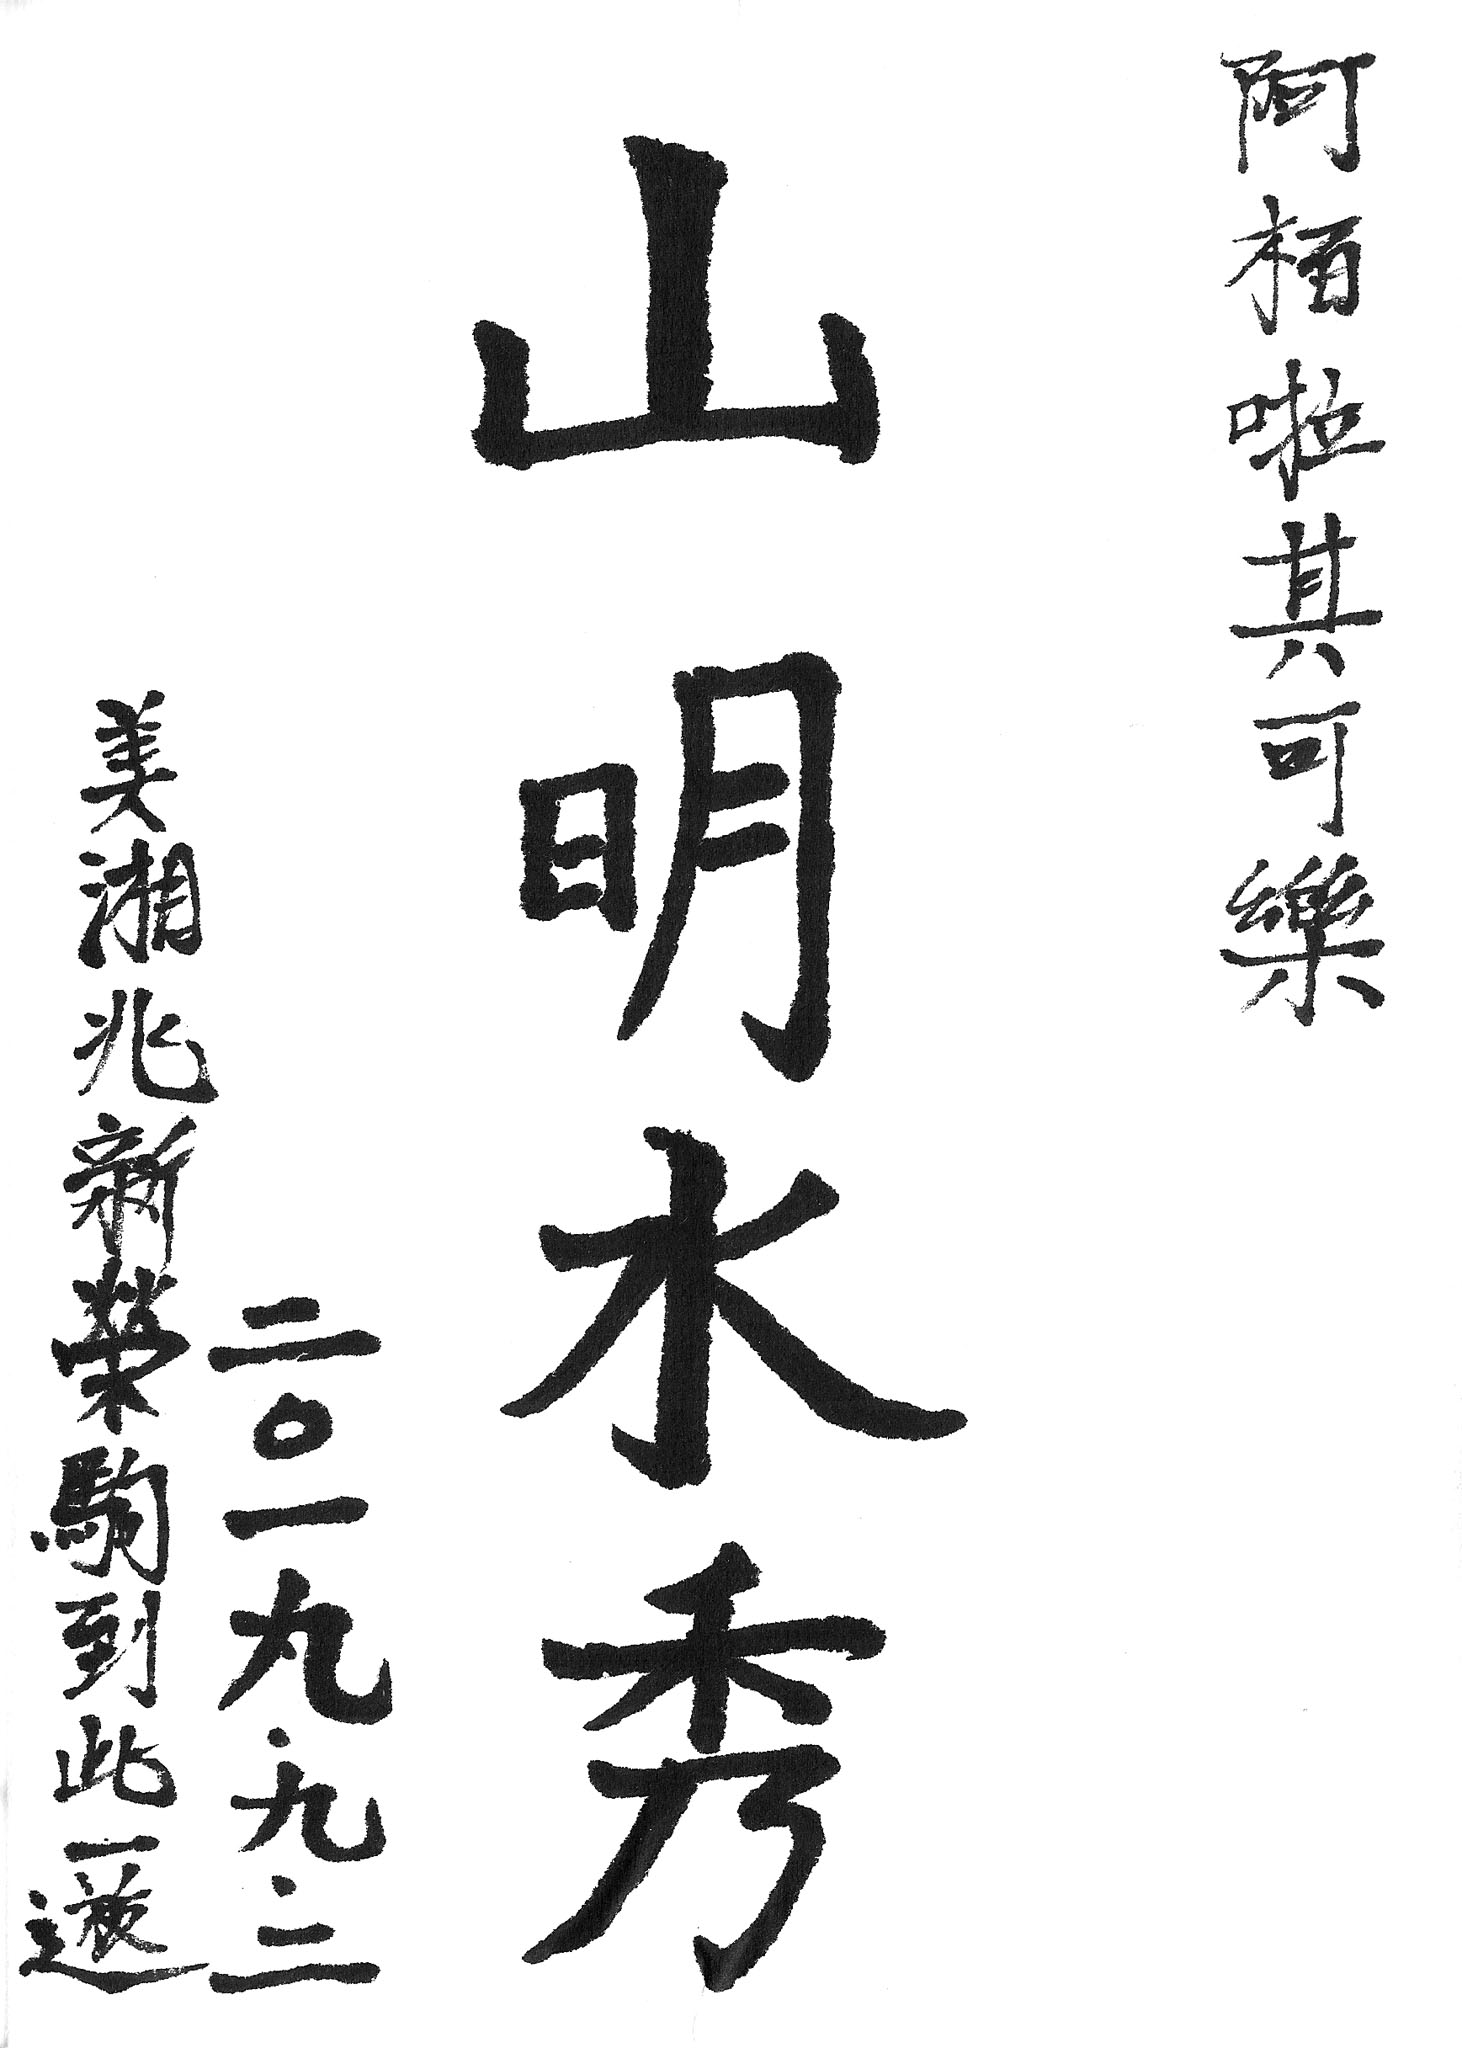 阿栢啦其可樂
山明水秀
二〇一九.九.三
美湘兆新榮駒到此一遊